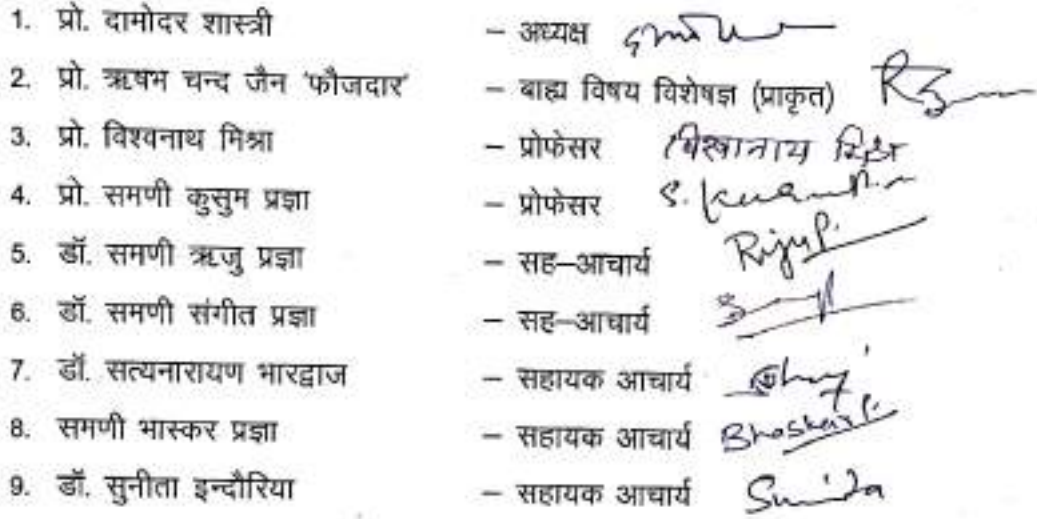 1. प्रो. दामोदर शास्त्री – अध्यक्ष
2. प्रो. ऋषभ चन्द जैन 'फौजदार' – बाह्य विषय विशेषज्ञ (प्राकृत)
3. प्रो. विश्वनाथ मिश्रा – प्रोफेसर विश्वनाथ मिश्र
4. प्रो. समणी कुसुम प्रज्ञा – प्रोफेसर
5. डॉ. समणी ऋजु प्रज्ञा – सह–आचार्य
6. डॉ. समणी संगीत प्रज्ञा – सह–आचार्य
7. डॉ. सत्यनारायण भारद्वाज – सहायक आचार्य
8. समणी भास्कर प्रज्ञा – सहायक आचार्य
9. डॉ. सुनीता इन्दौरिया – सहायक आचार्य Sunita